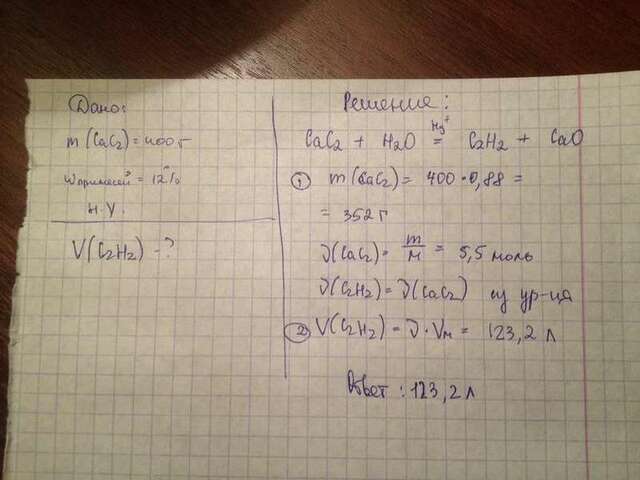 Дано:
m(CaC2) = 400г
ωпримесей = 12%
н.у.
V(C2H2) - ?
Решение:
CaC2 + H2O =Hg+ C2H2 + CaO
① m(CaC2) = 400 · 0,88 =
= 352 г
ν(CaC2) = m/M = 5,5 моль
ν(C2H2) = ν(CaC2) из ур-ия
② V(C2H2) = ν · Vм = 123,2 л
Ответ : 123,2 л